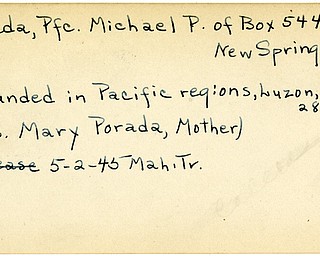 ada, Pfc. Michael P. of Box 544
New Spring
unded in Pacific regions, Luzon,
28
s. Mary Porada, Mother)
ease 5-2-45 Mah. Tr.